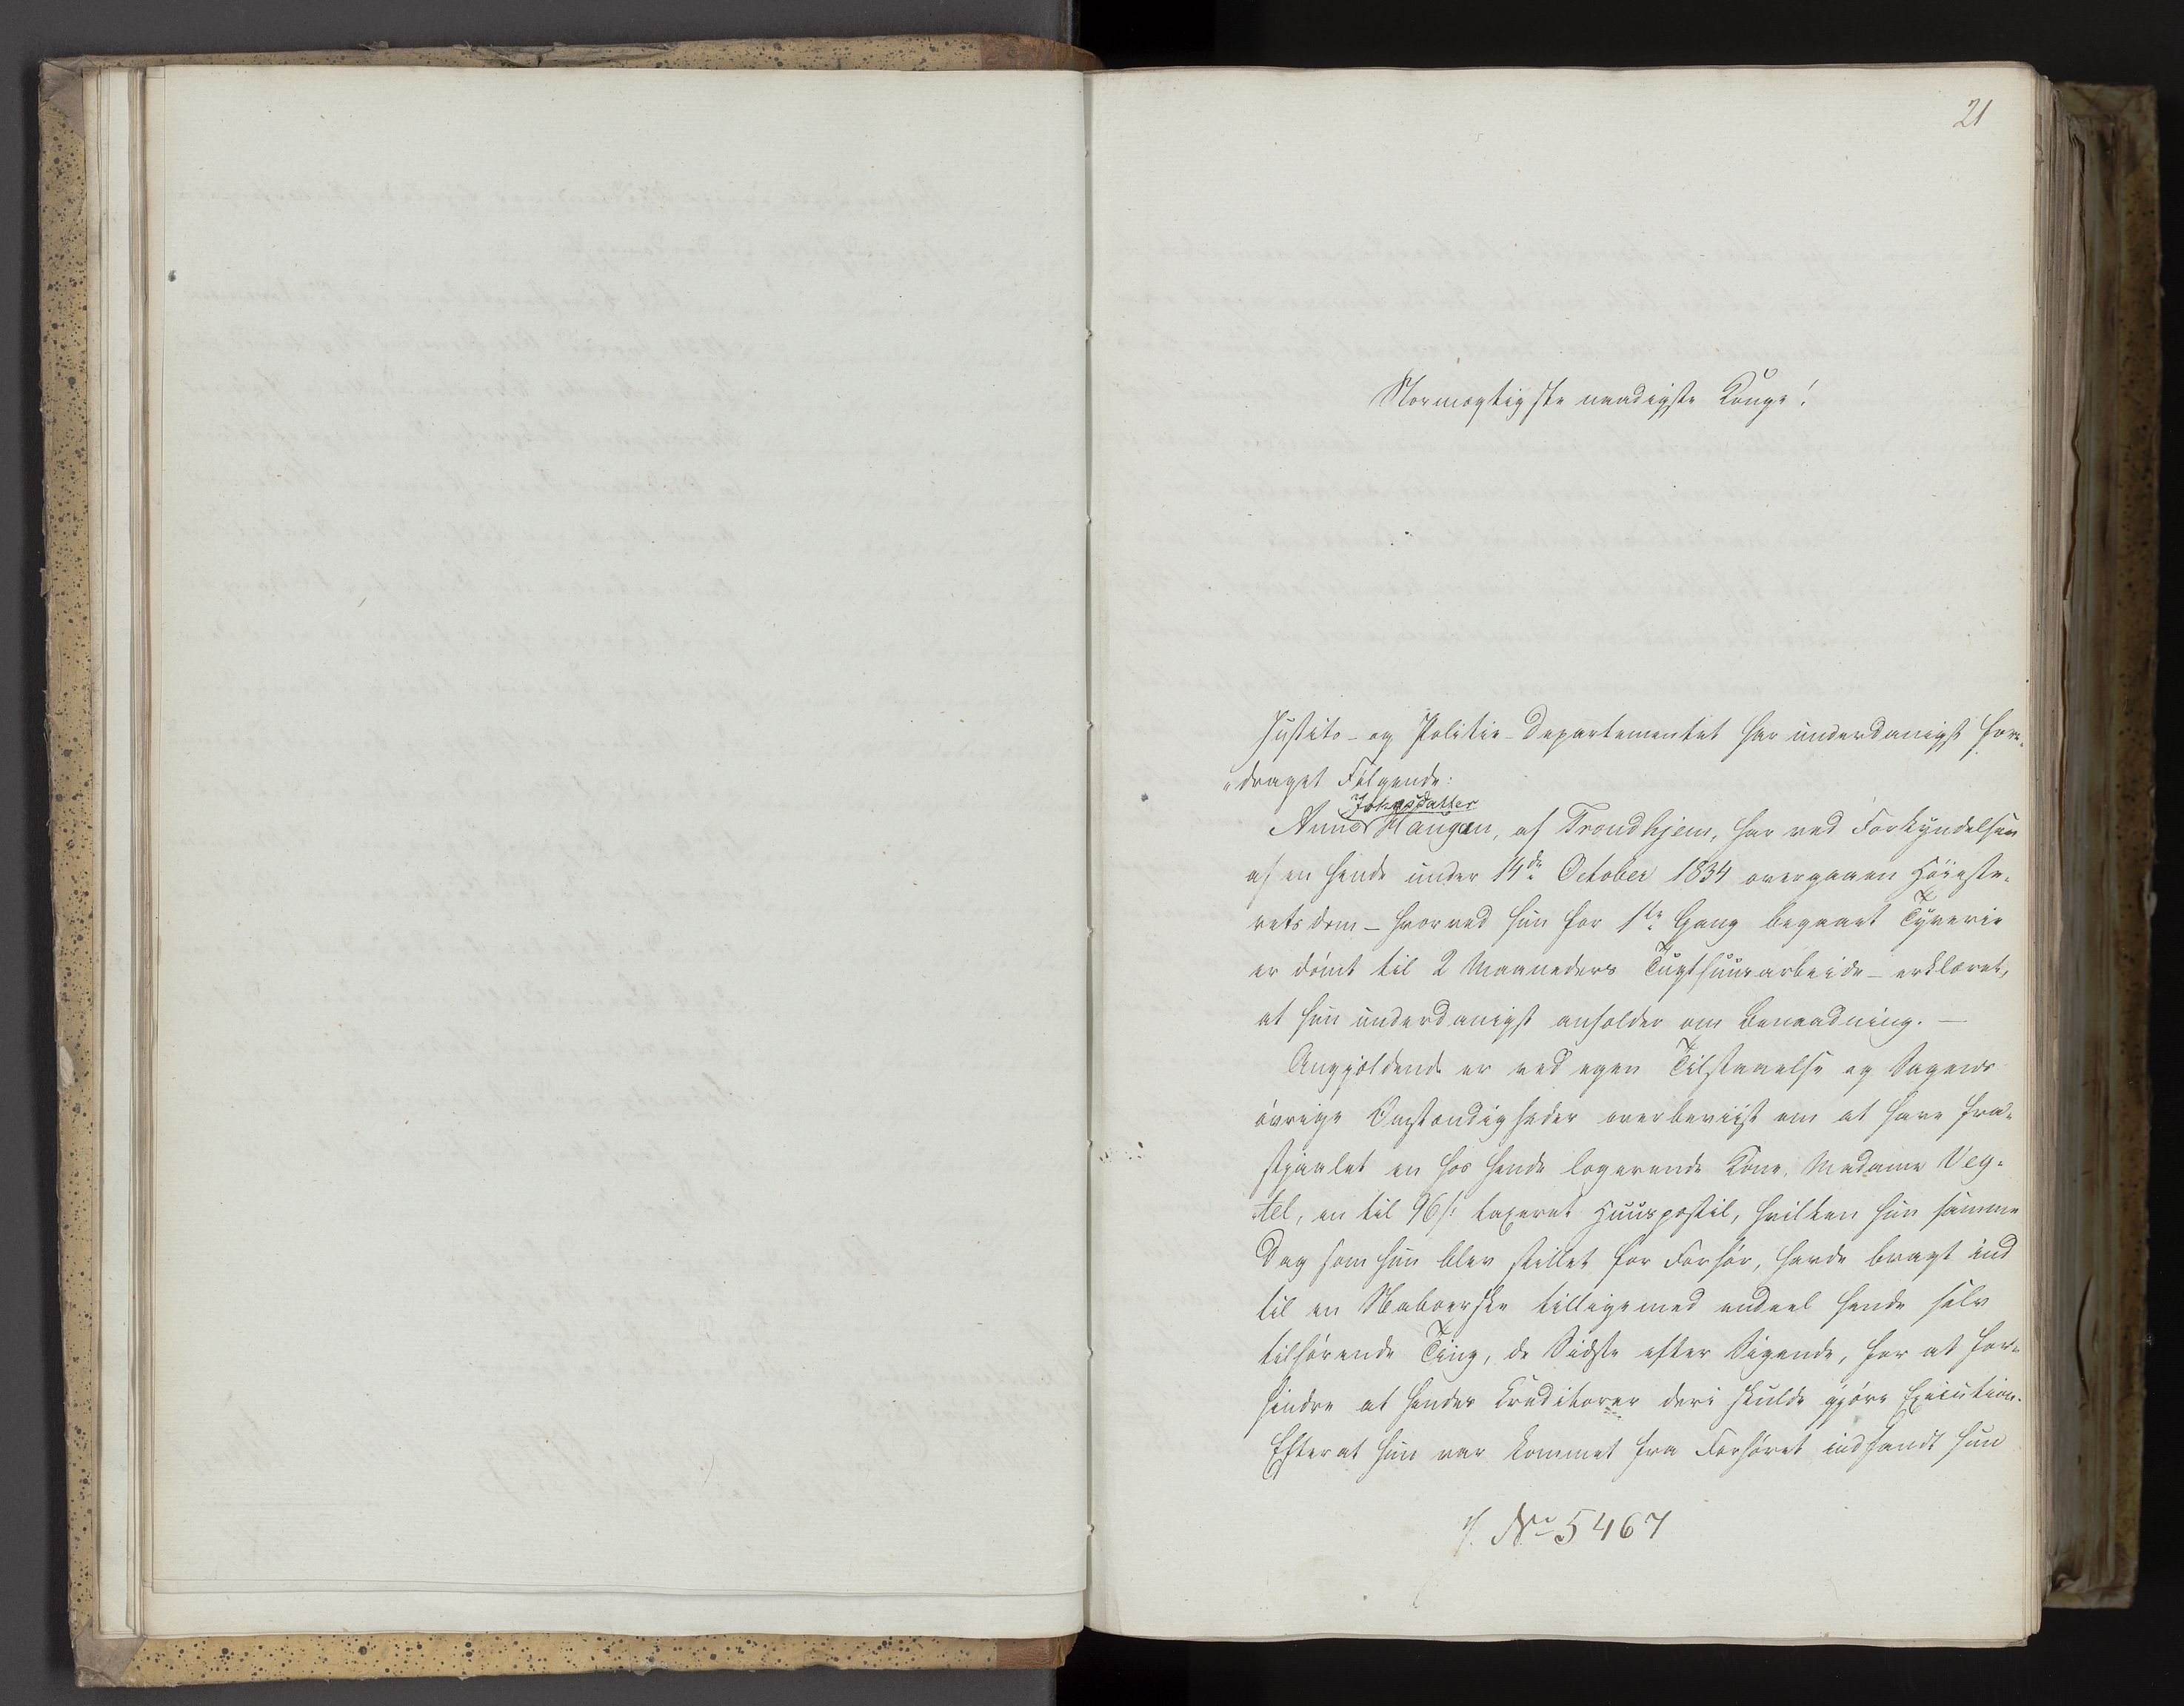 21
Stormægtigste naadigste Konge!
Justits- og Politie-Departementet har underdanigst fore-
draget Følgende:
Johnsdatter
Anne Haugen, af Trondhjem, har ved Forkyndelsen
af en hende under 14de October 1834 overgaaen Høieste-
retsdom – hvorved hun for 1ste Gang begaaet Tyverie
er dømt til 2 Maaneders Tugthuusarbeide – erklæret,
at hun underdanigst anholder om Benaadning. –
Angjældende er ved egen Tilstaaelse og Sagens
øvrige Omstændigheder overbeviist om at have fra-
stjaalet en hos hende logerende Kone, Madame Veg-
tel, en til 96 s: taxeret Huuspostil, hvilken hun samme
Dag som hun blev stillet for Forhør, havde bragt ind
til en Naboerske tilligemed endeel hende selv
tilhørende Ting, de Sidste efter Sigende, for at for-
hindre at hendes Creditorer deri skulde gjøre Execution.
Efterat hun var kommet fra Forhøret indfandt hun
J. No 5467